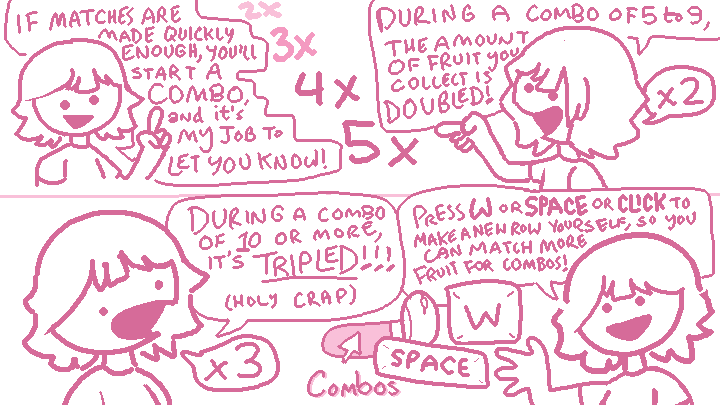 IF MATCHES ARE
MADE QUICKLY
ENOUGH, YOU'LL
START A
COMBO,
and it's
MY JOB TO
LET YOU KNOW!
2x
3x
4x
5x
DURING A COMBO OF 5 to 9,
THE AMOUNT
OF FRUIT YOU
COLLECT IS
DOUBLED!
x2
DURING A COMBO
OF 10 OR MORE,
IT'S TRIPLED!!!
(HOLY CRAP)
x3
PRESS W OR SPACE OR CLICK TO
MAKE A NEW ROW YOURSELF, SO YOU
CAN MATCH MORE
FRUIT FOR COMBOS!
W
SPACE
Combos